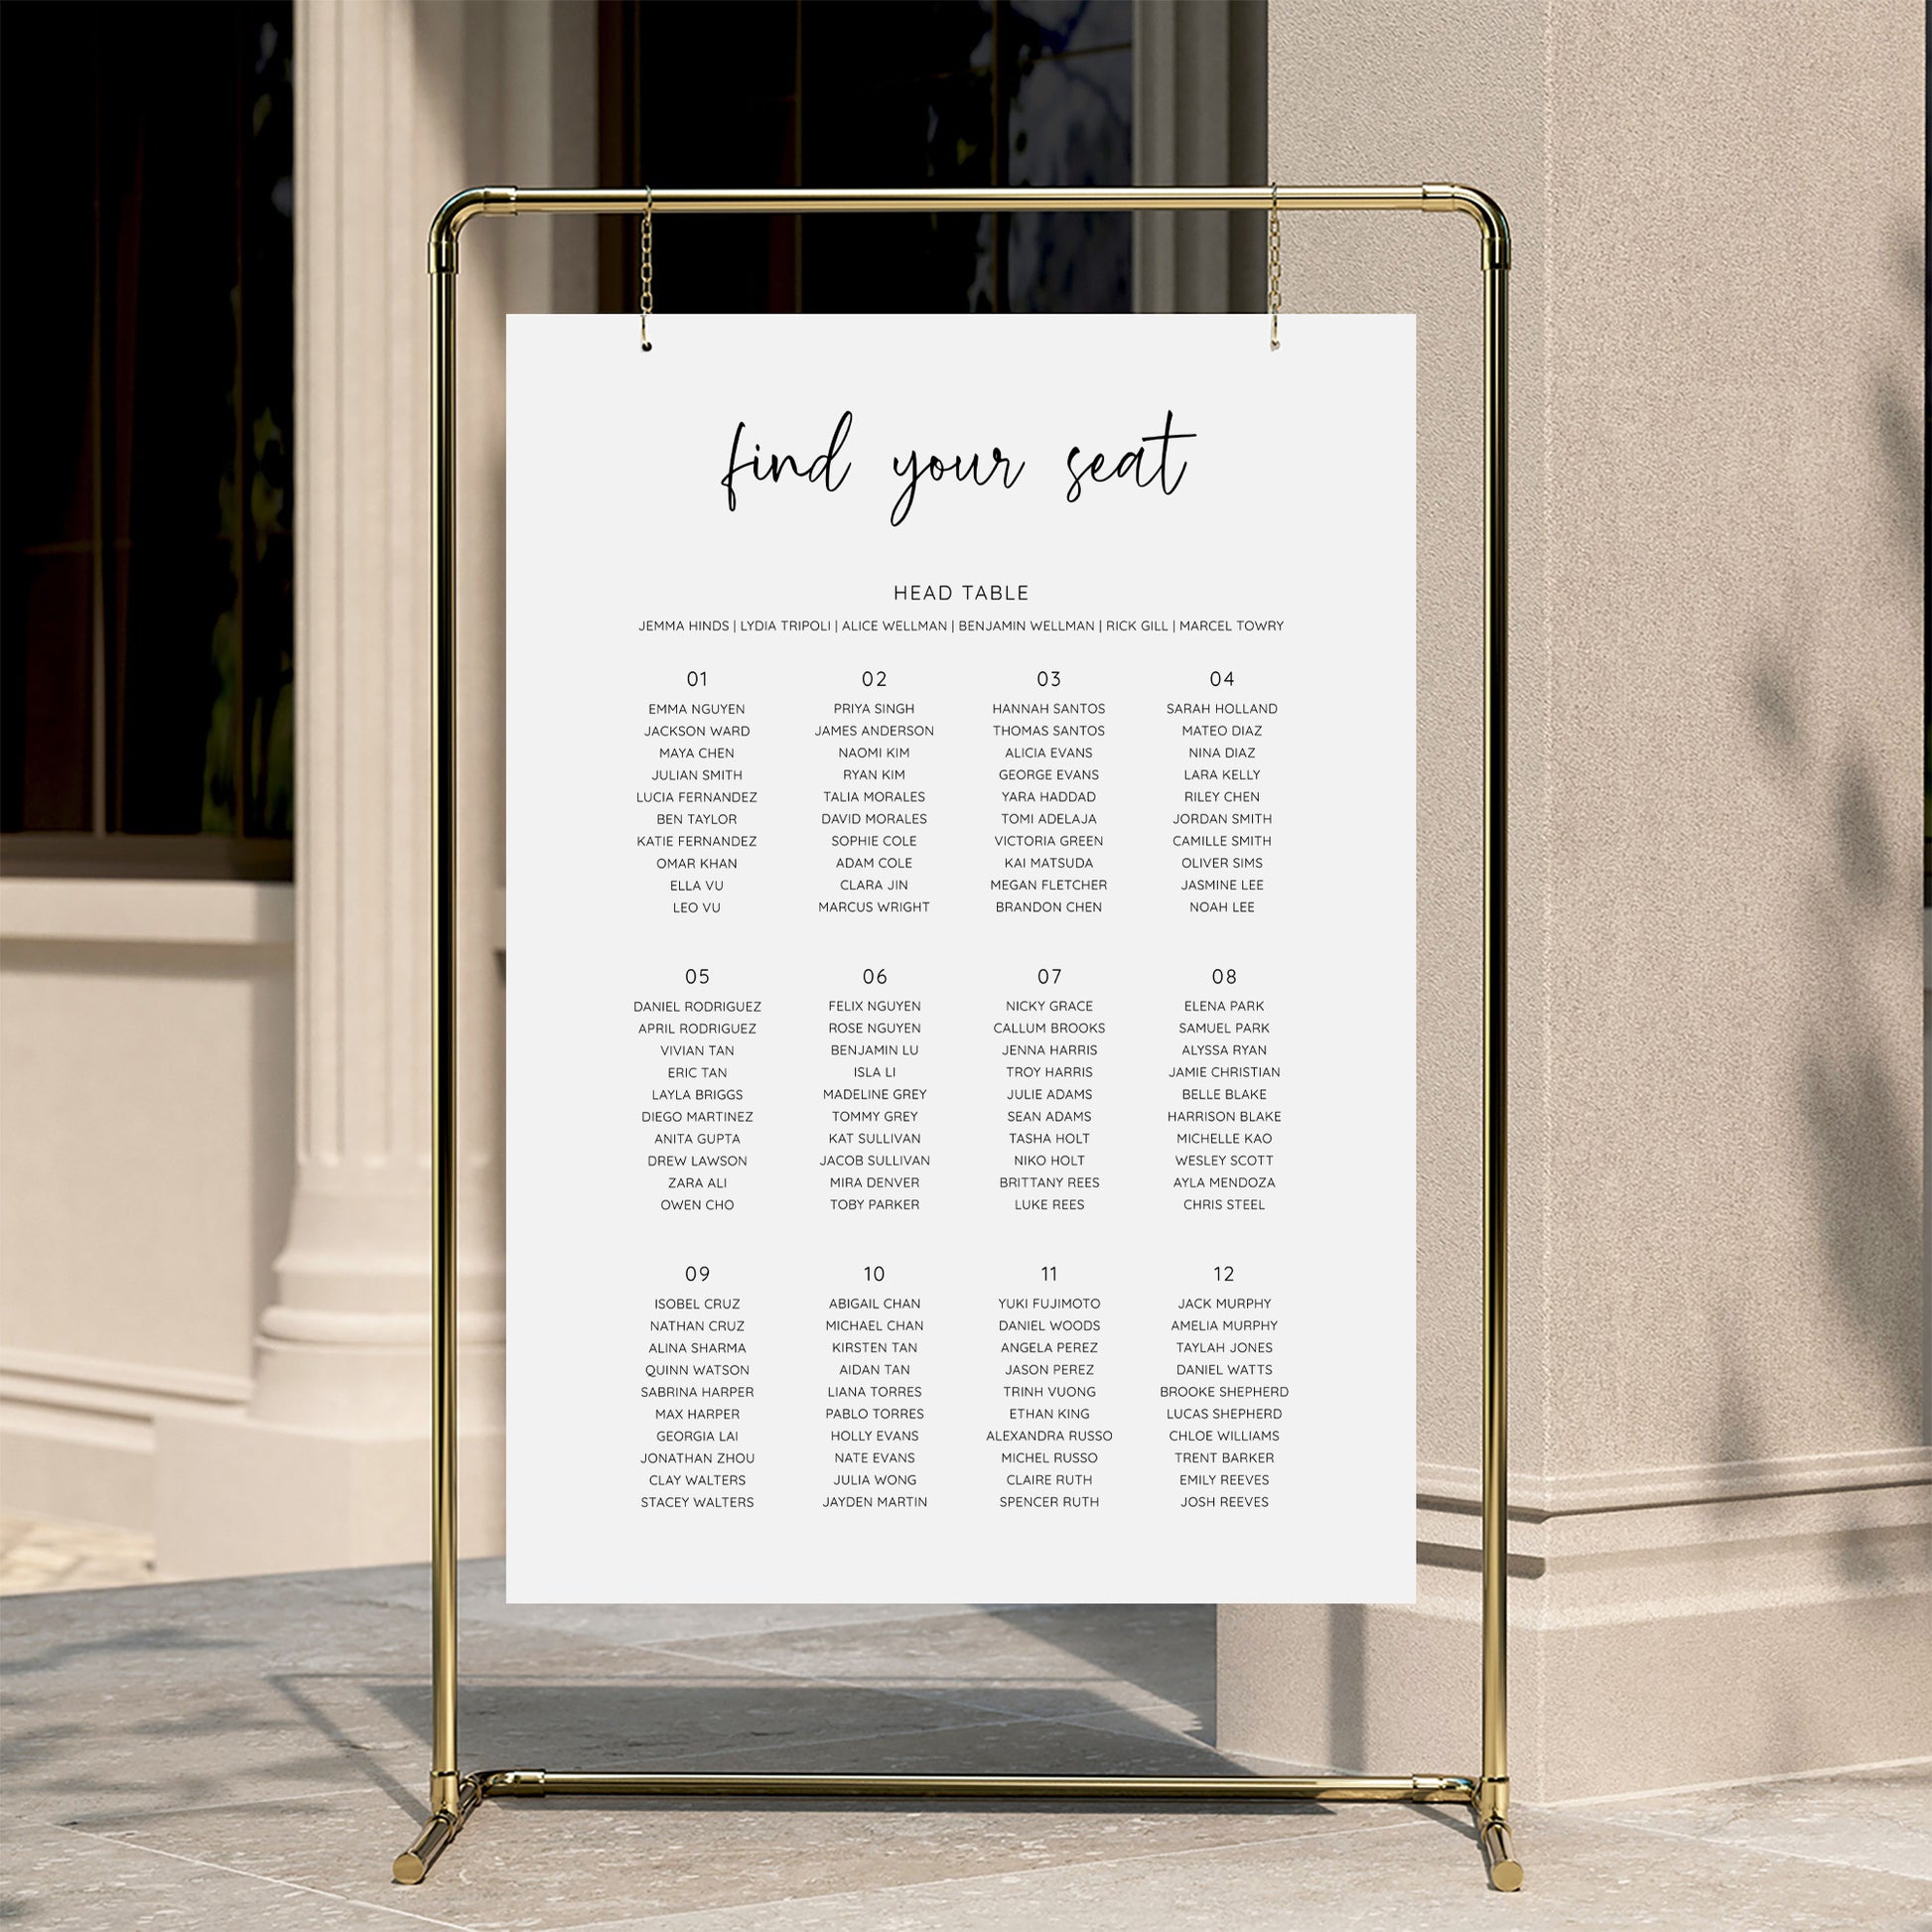 find your seat
HEAD TABLE
JEMMA HINDS | LYDIA TRIPOLI | ALICE WELLMAN | BENJAMIN WELLMAN | RICK GILL | MARCEL TOWRY
01
EMMA NGUYEN
JACKSON WARD
MAYA CHEN
JULIAN SMITH
LUCIA FERNANDEZ
BEN TAYLOR
KATIE FERNANDEZ
OMAR KHAN
ELLA VU
LEO VU
02
PRIYA SINGH
JAMES ANDERSON
NAOMI KIM
RYAN KIM
TALIA MORALES
DAVID MORALES
SOPHIE COLE
ADAM COLE
CLARA JIN
MARCUS WRIGHT
03
HANNAH SANTOS
THOMAS SANTOS
ALICIA EVANS
GEORGE EVANS
YARA HADDAD
TOMI ADELAJA
VICTORIA GREEN
KAI MATSUDA
MEGAN FLETCHER
BRANDON CHEN
04
SARAH HOLLAND
MATEO DIAZ
NINA DIAZ
LARA KELLY
RILEY CHEN
JORDAN SMITH
CAMILLE SMITH
OLIVER SIMS
JASMINE LEE
NOAH LEE
05
DANIEL RODRIGUEZ
APRIL RODRIGUEZ
VIVIAN TAN
ERIC TAN
LAYLA BRIGGS
DIEGO MARTINEZ
ANITA GUPTA
DREW LAWSON
ZARA ALI
OWEN CHO
06
FELIX NGUYEN
ROSE NGUYEN
BENJAMIN LU
ISLA LI
MADELINE GREY
TOMMY GREY
KAT SULLIVAN
JACOB SULLIVAN
MIRA DENVER
TOBY PARKER
07
NICKY GRACE
CALLUM BROOKS
JENNA HARRIS
TROY HARRIS
JULIE ADAMS
SEAN ADAMS
TASHA HOLT
NIKO HOLT
BRITTANY REES
LUKE REES
08
ELENA PARK
SAMUEL PARK
ALYSSA RYAN
JAMIE CHRISTIAN
BELLE BLAKE
HARRISON BLAKE
MICHELLE KAO
WESLEY SCOTT
AYLA MENDOZA
CHRIS STEEL
09
ISOBEL CRUZ
NATHAN CRUZ
ALINA SHARMA
QUINN WATSON
SABRINA HARPER
MAX HARPER
GEORGIA LAI
JONATHAN ZHOU
CLAY WALTERS
STACEY WALTERS
10
ABIGAIL CHAN
MICHAEL CHAN
KIRSTEN TAN
AIDAN TAN
LIANA TORRES
PABLO TORRES
HOLLY EVANS
NATE EVANS
JULIA WONG
JAYDEN MARTIN
11
YUKI FUJIMOTO
DANIEL WOODS
ANGELA PEREZ
JASON PEREZ
TRINH VUONG
ETHAN KING
ALEXANDRA RUSSO
MICHEL RUSSO
CLAIRE RUTH
SPENCER RUTH
12
JACK MURPHY
AMELIA MURPHY
TAYLAH JONES
DANIEL WATTS
BROOKE SHEPHERD
LUCAS SHEPHERD
CHLOE WILLIAMS
TRENT BARKER
EMILY REEVES
JOSH REEVES